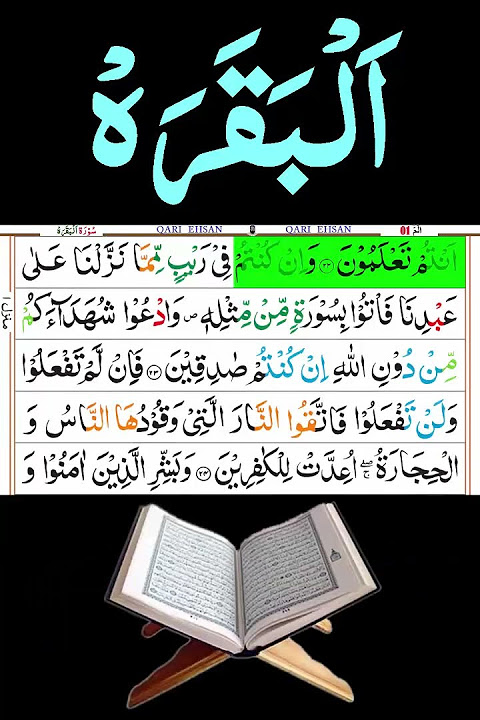 اَلْبَقَرَةْ
سُوْرَة اَلْبَقَرَة QARI EHSAN QARI EHSAN 01 الٓمّٓ
اَنْتُمْ تَعْلَمُوْنَ ﴿۲۲﴾ وَاِنْ كُنْتُمْ فِیْ رَیْبٍ مِّمَّا نَزَّلْنَا عَلٰى
عَبْدِنَا فَاْتُوْا بِسُوْرَةٍ مِّنْ مِّثْلِهٖ ص وَادْعُوْا شُهَدَآءَكُمْ
مِّنْ دُوْنِ اللّٰهِ اِنْ كُنْتُمْ صٰدِقِیْنَ ﴿۲۳﴾ فَاِنْ لَّمْ تَفْعَلُوْا
وَلَنْ تَفْعَلُوْا فَاتَّقُوا النَّارَ الَّتِیْ وَقُوْدُهَا النَّاسُ وَ
الْحِجَارَةُ ۖۚ اُعِدَّتْ لِلْكٰفِرِیْنَ ﴿۲۴﴾ وَبَشِّرِ الَّذِیْنَ اٰمَنُوْا وَ
منزل ۱